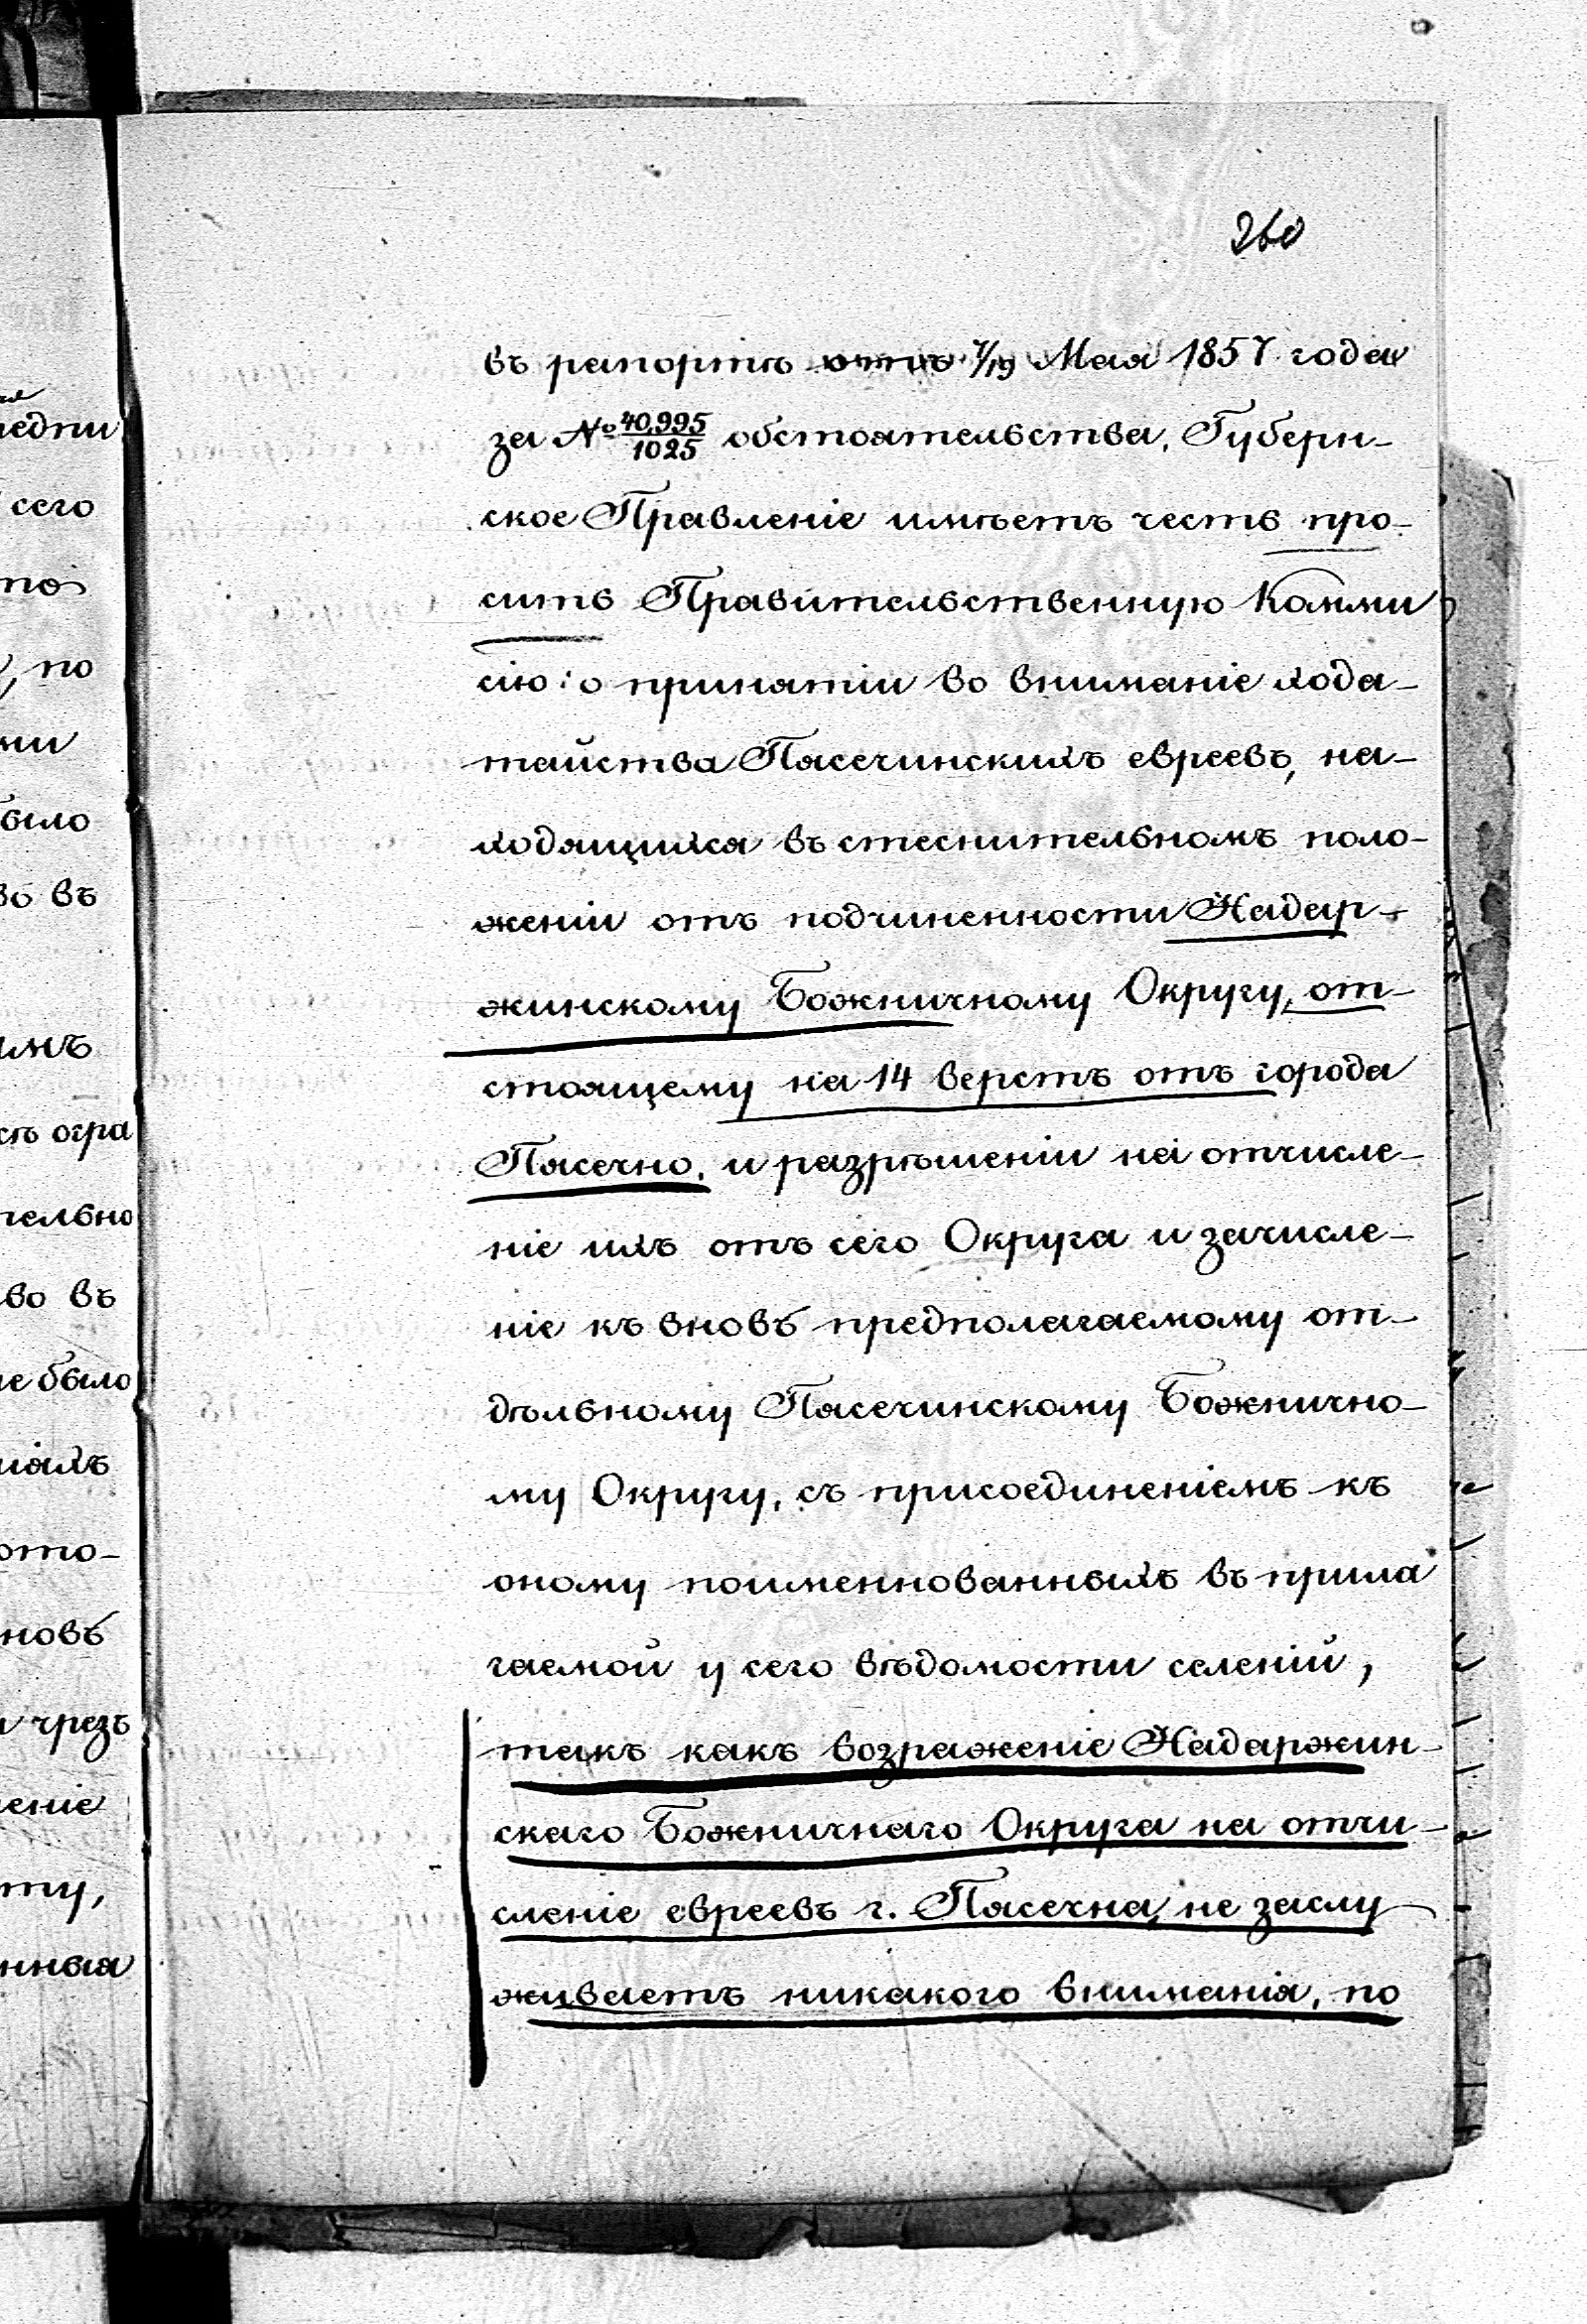 260
въ рапортѣ отъ 7/19 Мая 1857 года
за № 40,995/1025 обстоятельства, Губерн-
ское Правленіе имѣетъ честь про-
сить Правительственную Комми
сію: о принятіи во вниманіе хода-
тайства Пясечинскихъ евреевъ, на-
ходящихся въ стеснительномъ поло-
женіи отъ подчиненности Надар-
жинскому Божничному Округу, от-
стоящему на 14 верстъ отъ города
Пясечно, и разрѣшеніи на отчисле-
ніе ихъ отъ сего Округа и зачисле-
ніе къ вновь предполагаемому от-
дѣльному Пясечинскому Божнично-
му Округу, съ присоединеніемъ къ
оному поименнованныхъ въ прила
гаемой у сего вѣдомости селеній,
такъ какъ возраженіе Надаржин-
скаго Божничнаго Округа на отчи-
сленіе евреевъ г. Пясечна, не заслу
живаетъ никакого вниманія, по
сего
по
было
въ
огра
во въ
не было
вновь
чрезъ